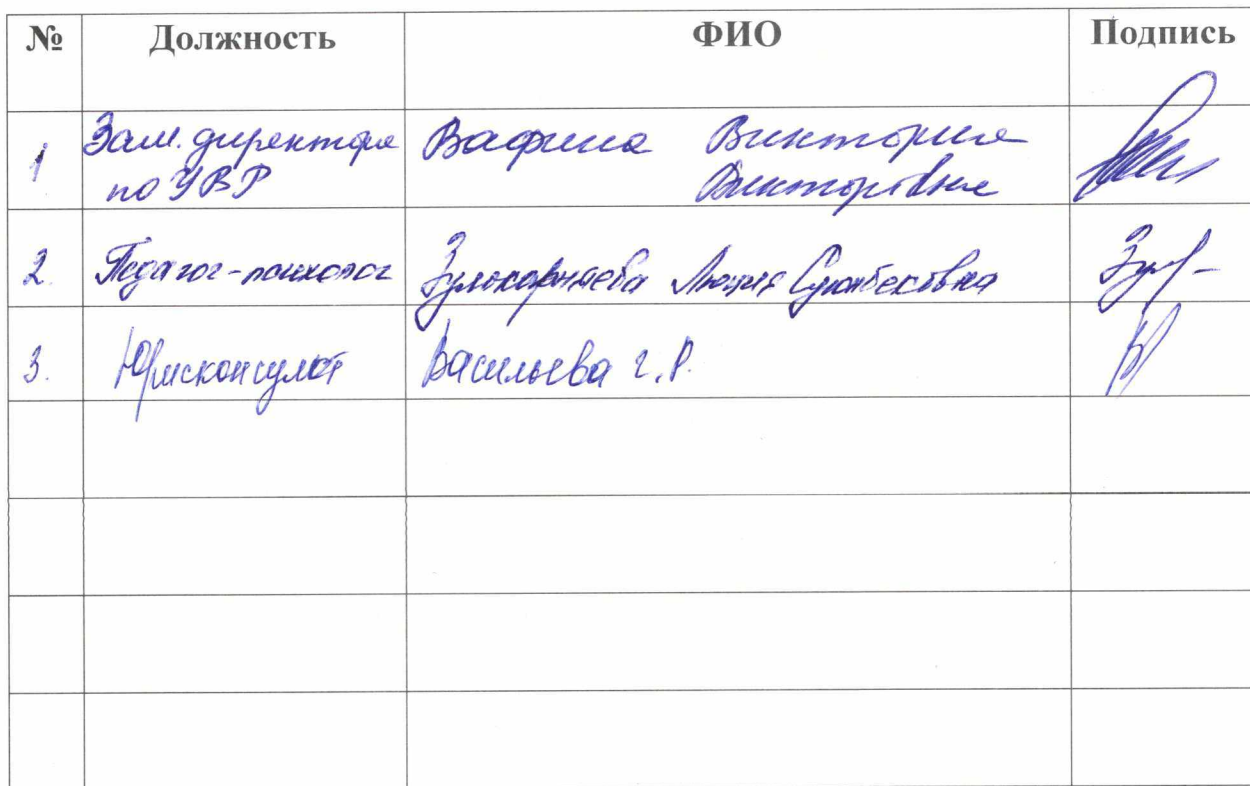 № Должность ФИО Подпись
1 Зам. директора Вафина Виктория
по УВР Викторовна
2. Педагог-психолог Зулькарняева Люция
3. Юрисконсульт Васильева г.Р.